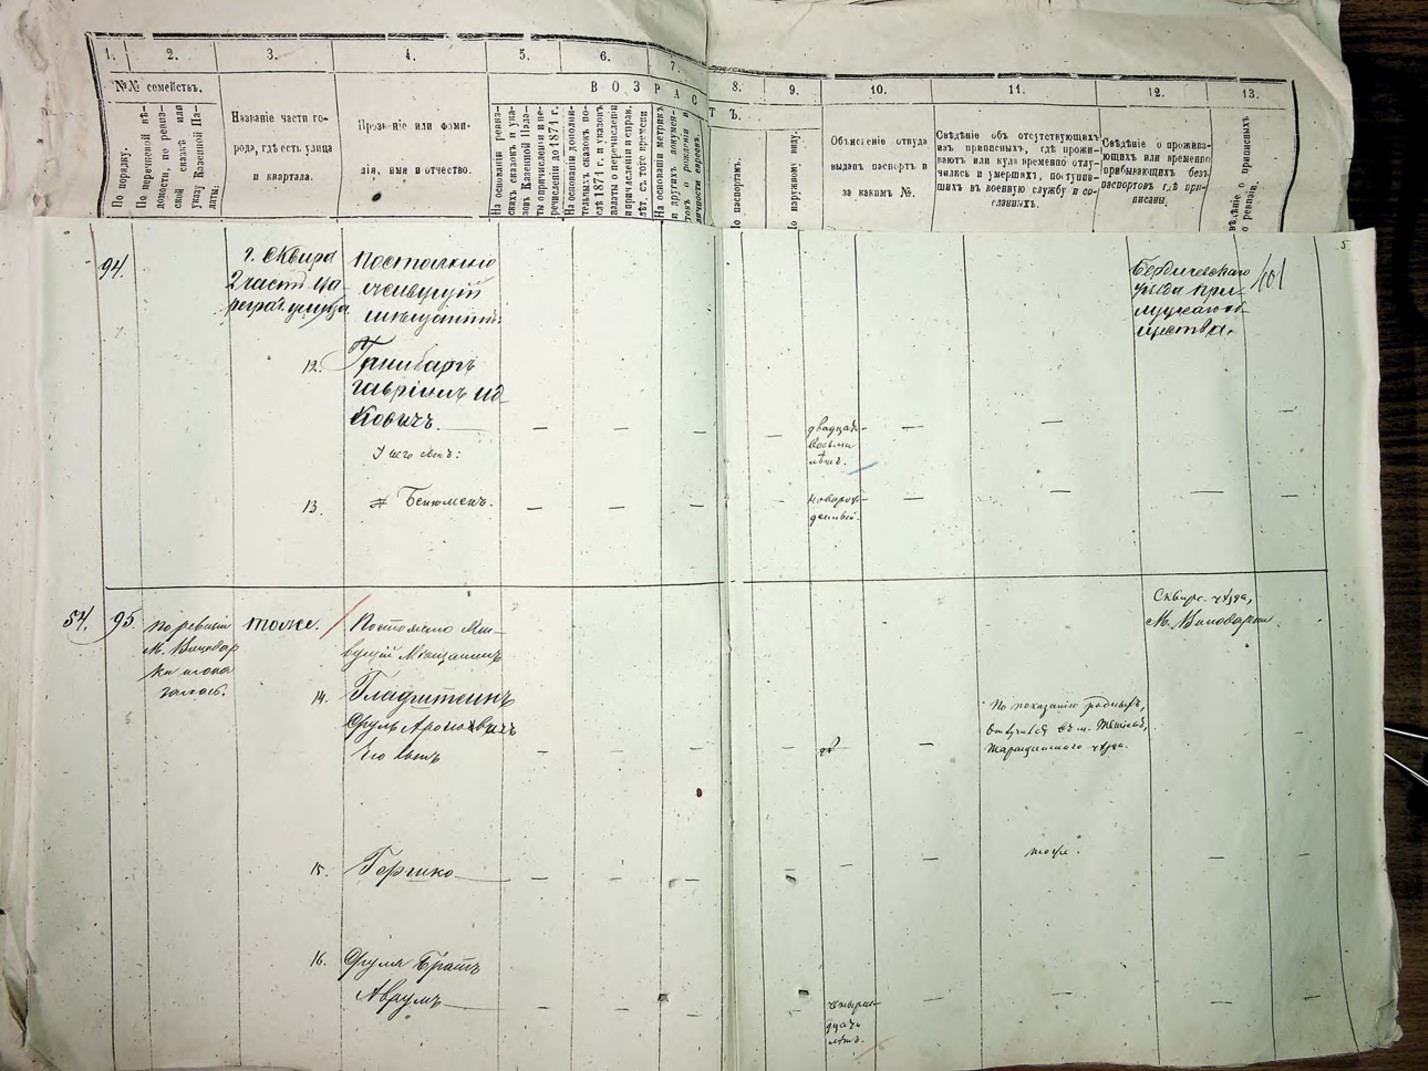 1. 2. 3. 4. 5. 6. 7. 8. 9. 10. 11. 12. 13.
№№ семействъ.
По порядку.
По перечневой вѣ-
домости, по ревиз-
ской сказкѣ или
указу Казенной Па-
латы:
Названіе части го-
рода, гдѣ есть улица
и квартала.
Прозваніе или фами-
лія, имя и отчество.
ВОЗРАСТЪ.
На основаніи ревиз-
скихъ сказокъ и ука-
зовъ Казенной Пала-
ты о причисленіи и пе-
речисленіи до 1871 г.
На основаніи дополни-
тельныхъ сказокъ по-
слѣ 1871 г. и указовъ
палаты о перечисленіи
и причисленіи и справ.
лѣт. съ того времени
На основаніи метрикъ
и другихъ докумен-
товъ о рожденіи и
личности евреевъ.
По паспортамъ.
по наружному виду.
Объясненіе откуда
выданъ паспортъ и
за какимъ №.
Свѣдѣніе объ отсутствующихъ
изъ приписныхъ, гдѣ прожи-
ваютъ или куда временно отлу-
чились и умершихъ, поступив-
шихъ въ военную службу и со-
сланныхъ.
Свѣдѣніе о прожива-
ющихъ или временно
прибывающихъ безъ
паспортовъ гдѣ при-
писаны.
о приписныхъ
о ревизіи.
5
94.
г. Сквира
2 части Ца-
реград. улица
Постоянно
жевущій
мѣщанинъ:
Бердичевскаго
уѣзда При-
лукскаго об-
щества.
101
12.
Гринбаргъ
Гавріилъ Иц-
ковичъ.
двадцать
восьми
лѣтъ.
У него сынъ:
13.
Бенюменъ.
новорож-
денный.
54.
95.
по ревизіи
м. Винодар
ки
тоже.
Постоянно жи-
вущій мѣщанинъ
Сквирс. уѣзда,
м. Винодарки.
14.
Гладштеинъ
Сруль Ароновичъ
Его сынъ
По показанію родныхъ,
отлучился въ м. Тетіевъ,
Таращанскаго уѣзда.
15.
Гершко
тоже.
16.
Сруля братъ
Аврумъ
четырнад
цать
лѣтъ.